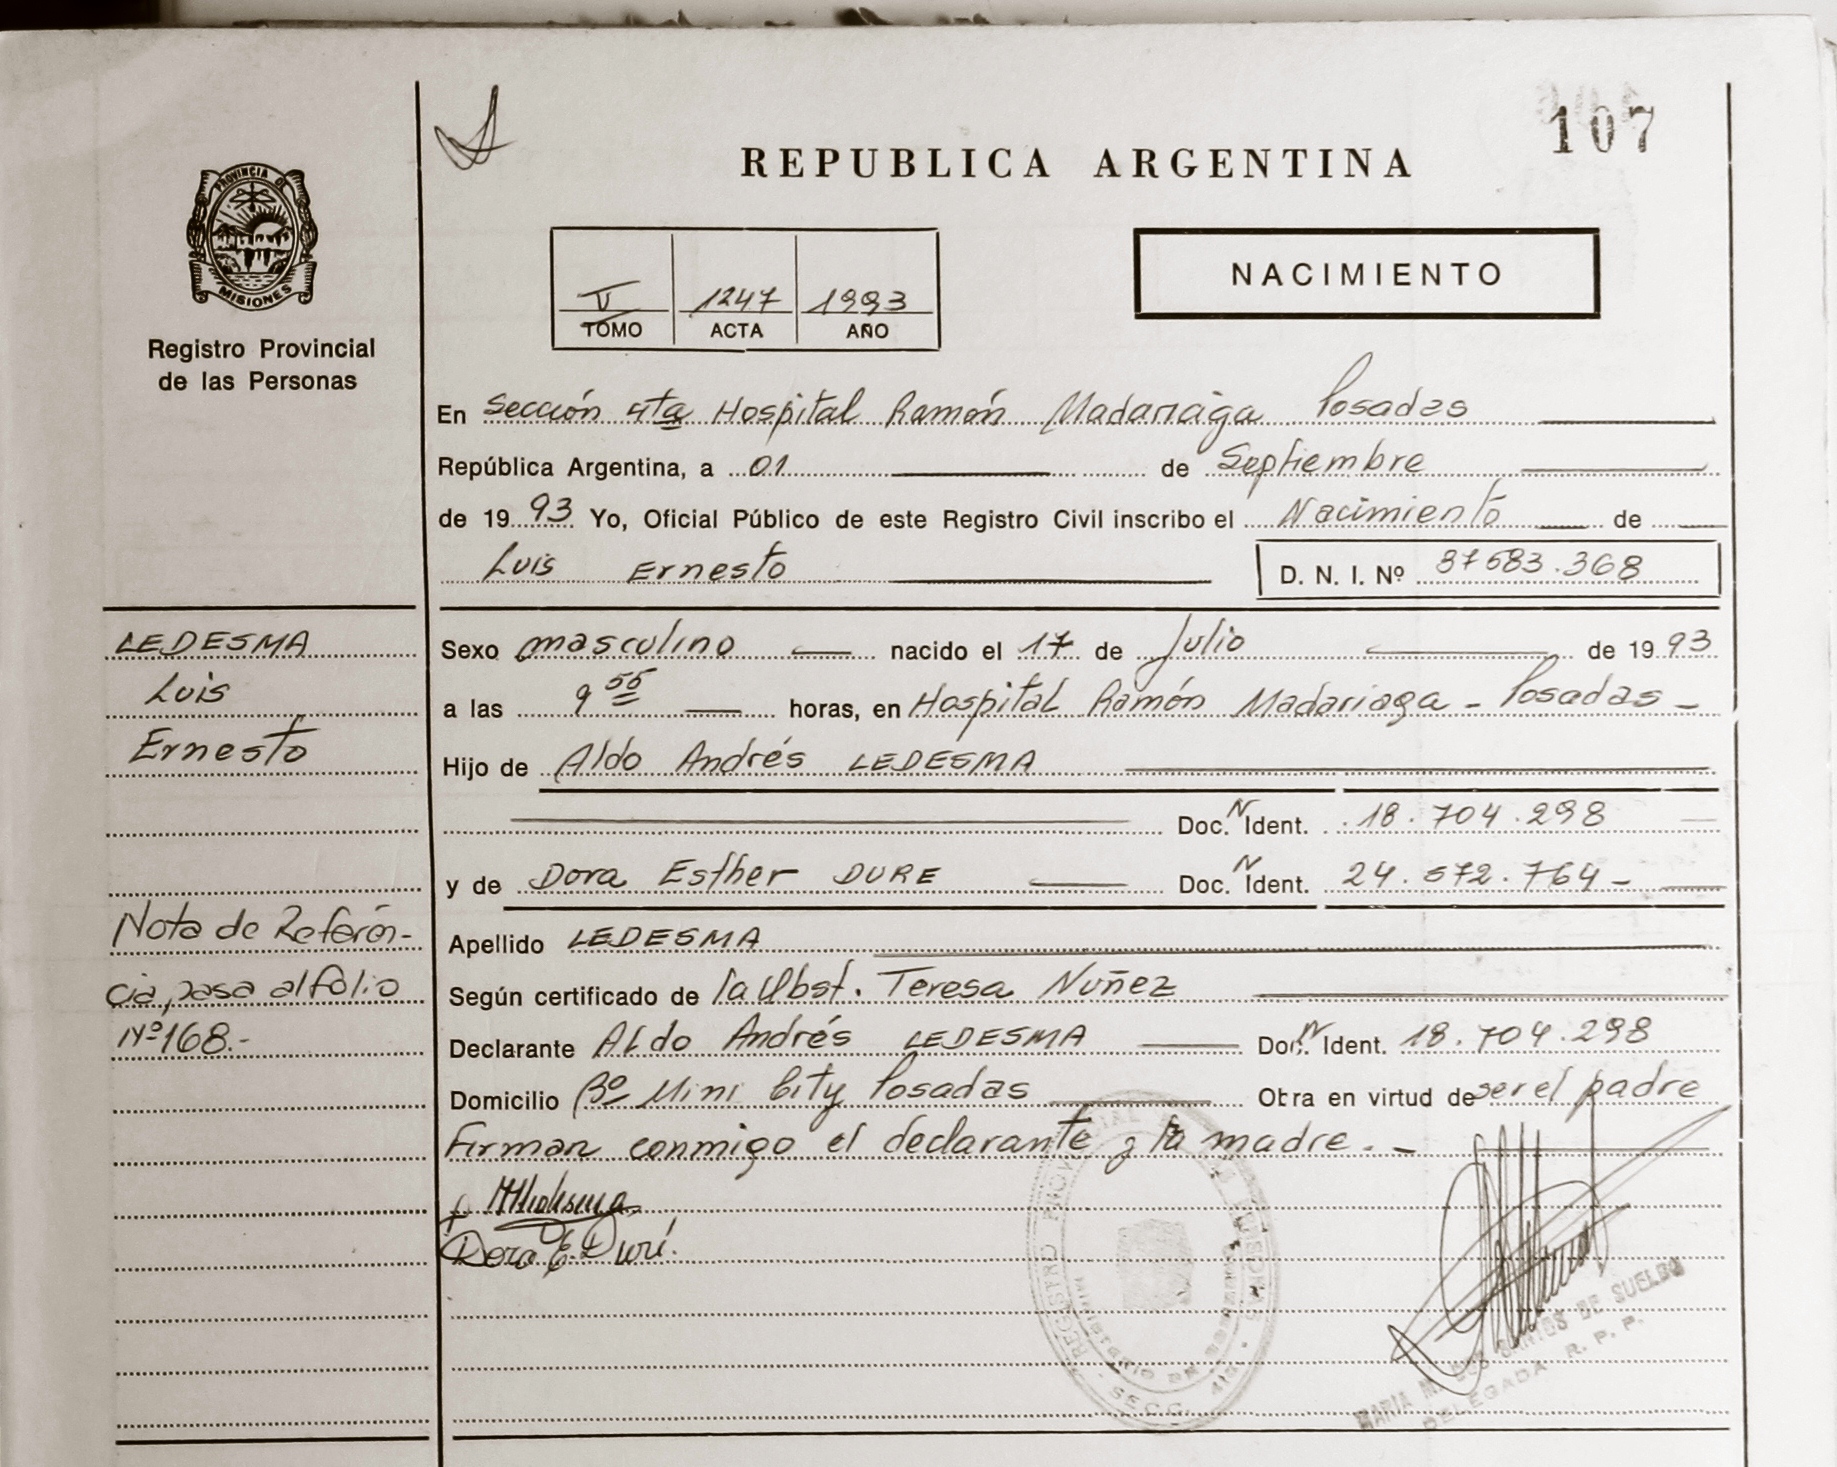 107
REPUBLICA ARGENTINA
PROVINCIA DE
MISIONES
Registro Provincial
de las Personas
V 1247 1993
TOMO ACTA AÑO
NACIMIENTO
En Sección 4ta Hospital Ramón Madariaga Posadas
República Argentina, a 01 de Septiembre
de 1993 Yo, Oficial Público de este Registro Civil inscribo el Nacimiento de
Luis Ernesto D. N. I. Nº 37683.368
LEDESMA
Luis
Ernesto
Sexo masculino nacido el 17 de Julio de 1993
a las 9 55 horas, en Hospital Ramón Madariaga - Posadas -
Hijo de Aldo Andrés LEDESMA
Doc. N Ident. 18.704.298
y de Dora Esther DURE Doc. N Ident. 24.572.764-
Apellido LEDESMA
Según certificado de la Obst. Teresa Nuñez
Declarante Aldo Andrés LEDESMA Doc. N Ident. 18.704.298
Domicilio Bº Mini City Posadas Obra en virtud de ser el padre
Firman conmigo el declarante y la madre.-
Nota de Referen-
cia, pasa al folio
Nº 168.-
Dora E. Duré.
REGISTRO PROVINCIAL
MINISTERIO DE GOBIERNO
SECC. 4ta
DE SUELDO
DELEGADA R. P. P.